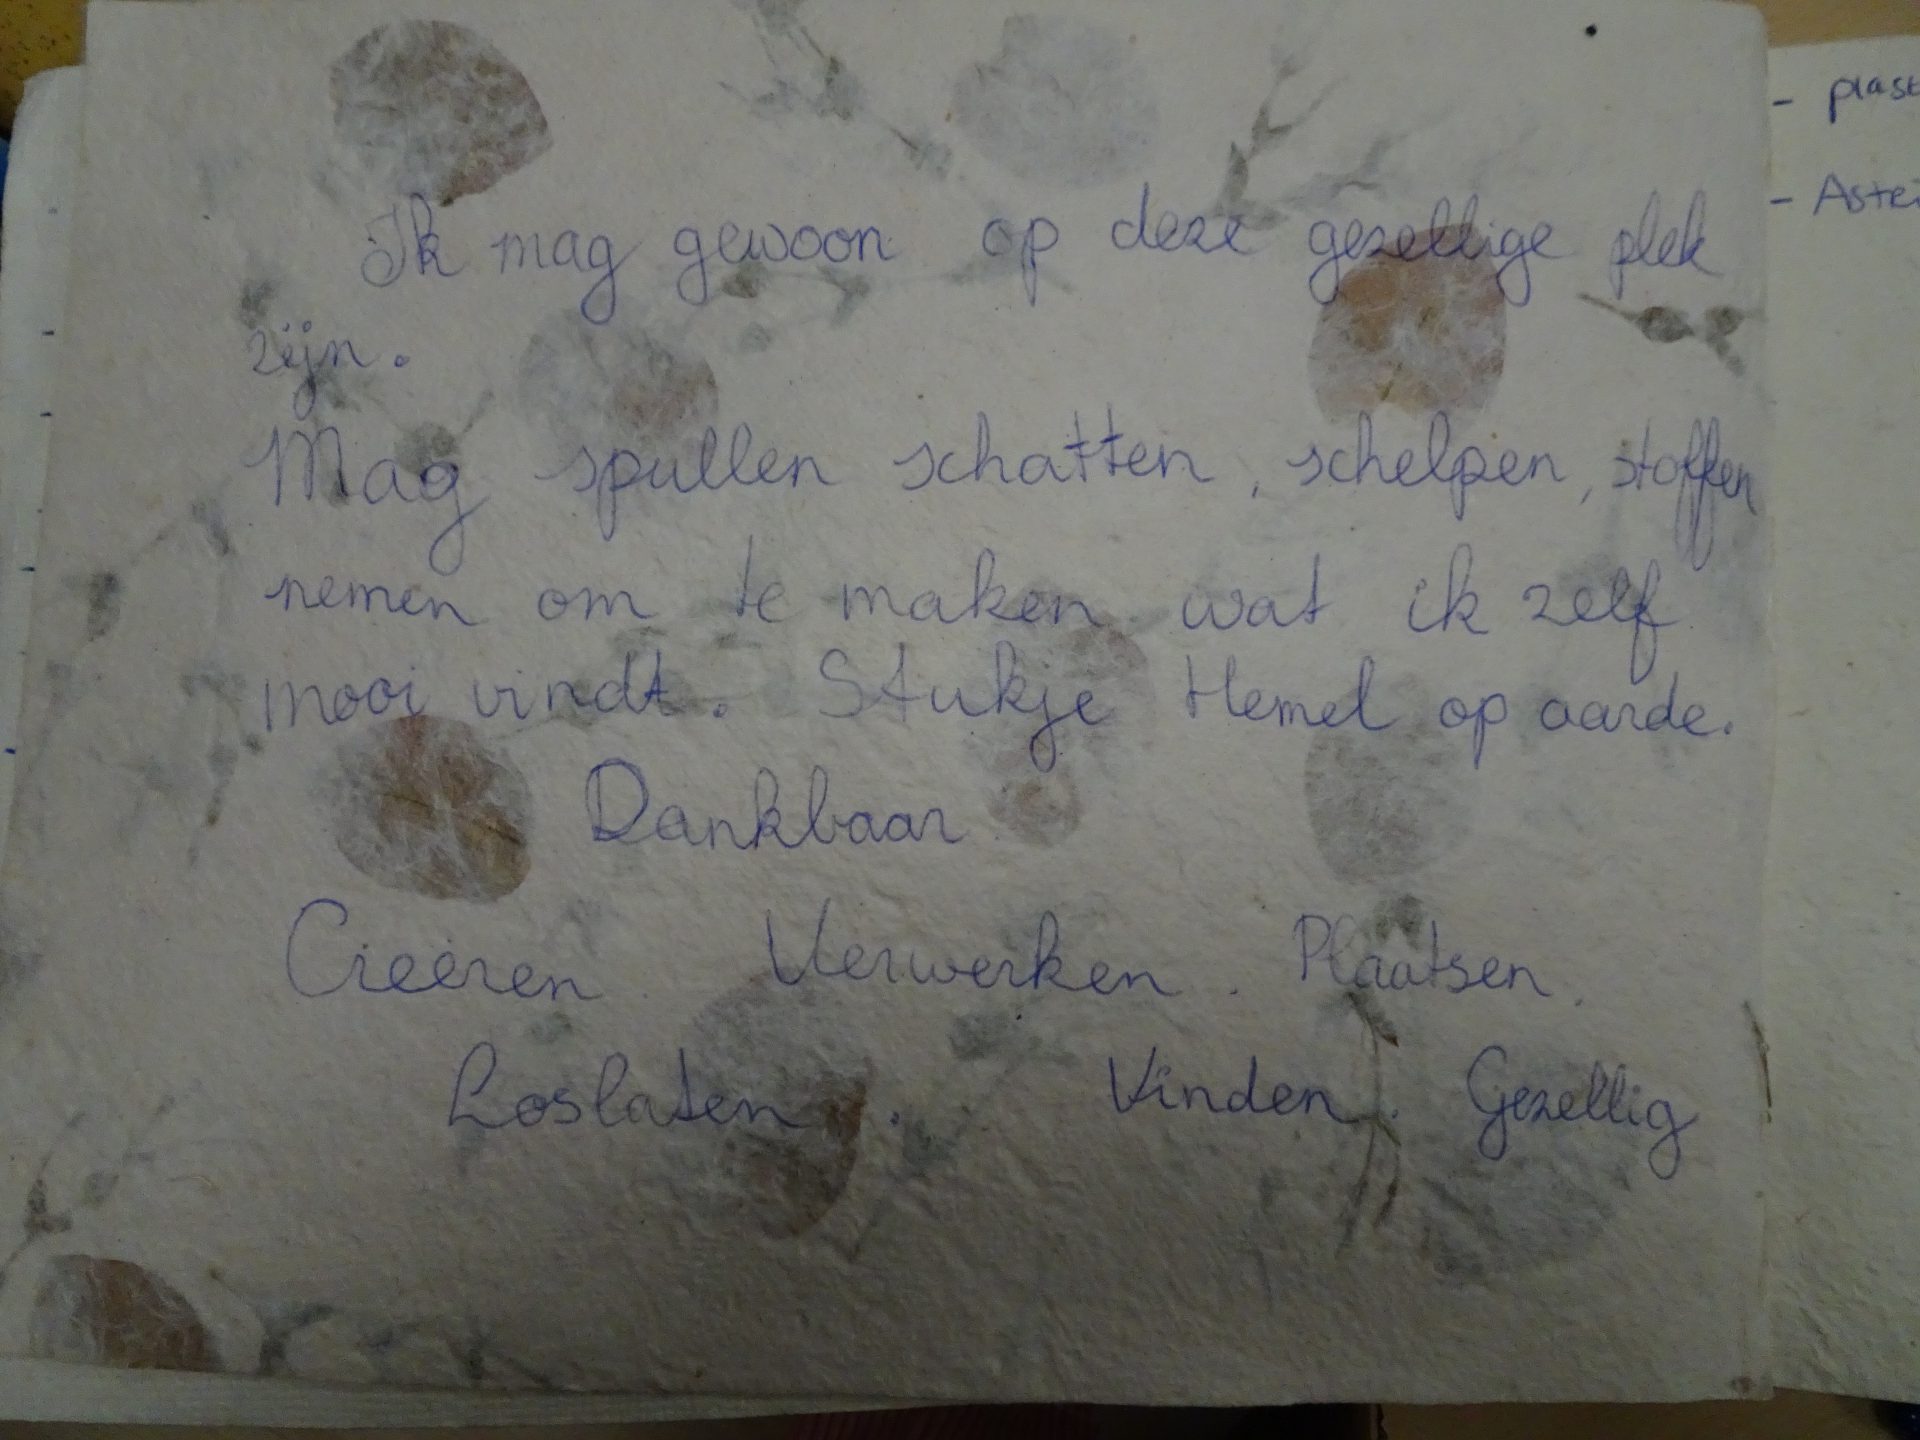 Ik mag gewoon op deze gezellige plek
zijn.
Mag spullen schatten, schelpen, stoffen
nemen om te maken wat ik zelf
mooi vindt. Stukje Hemel op aarde.
Dankbaar
Creëren. Verwerken. Plaatsen.
Loslaten. Vinden. Gezellig
- plast
- Astri